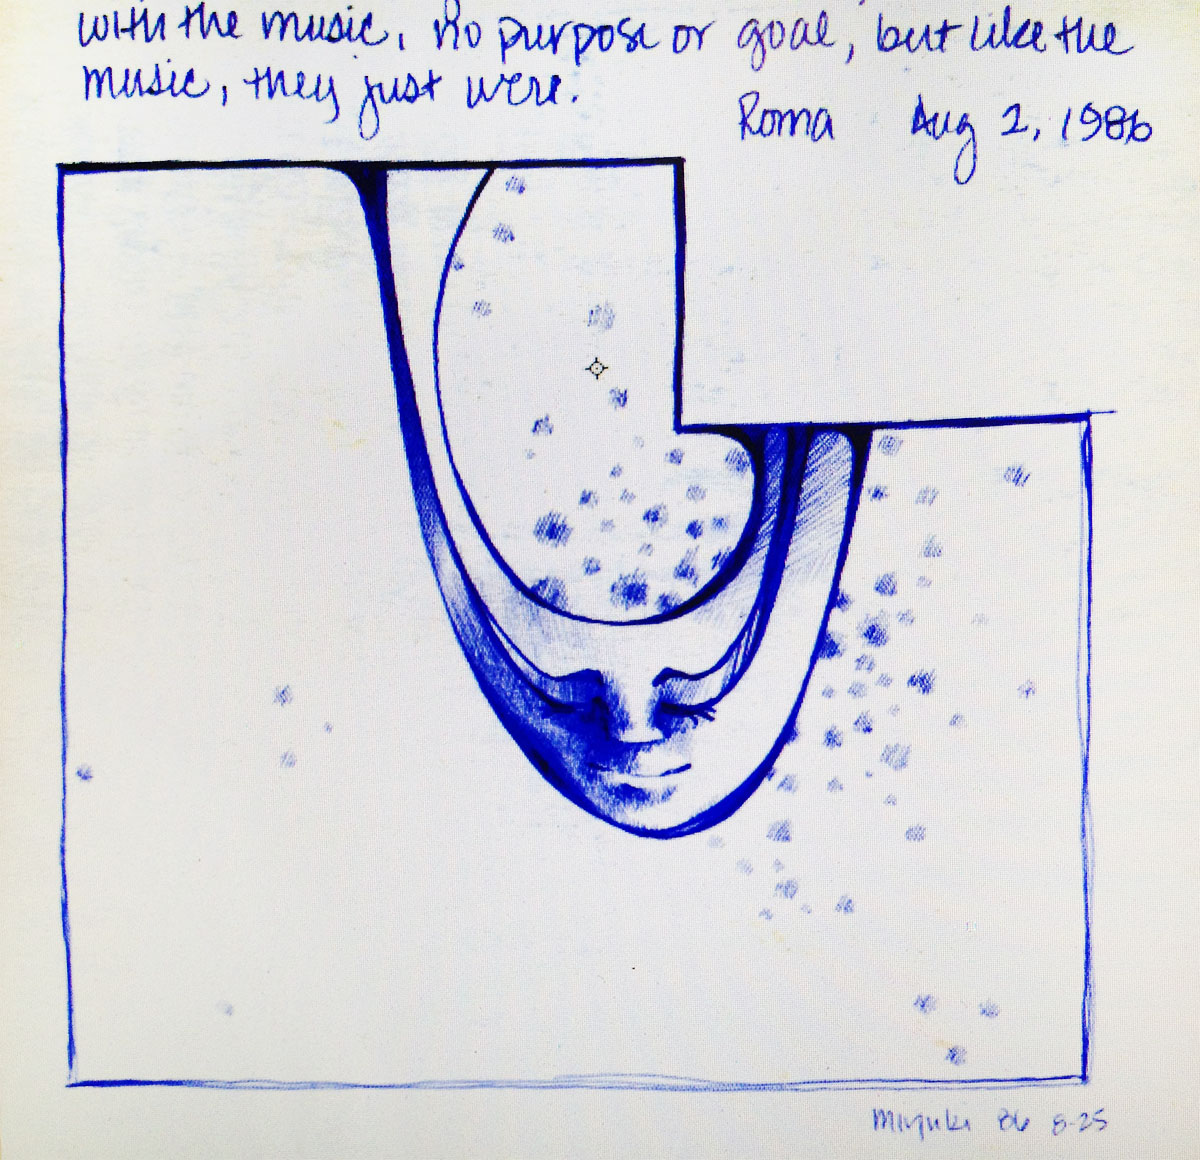 with the music. No purpose or goal, but like the
music, they just were.
Roma Aug 2, 1986
Miyuki 86 8-25